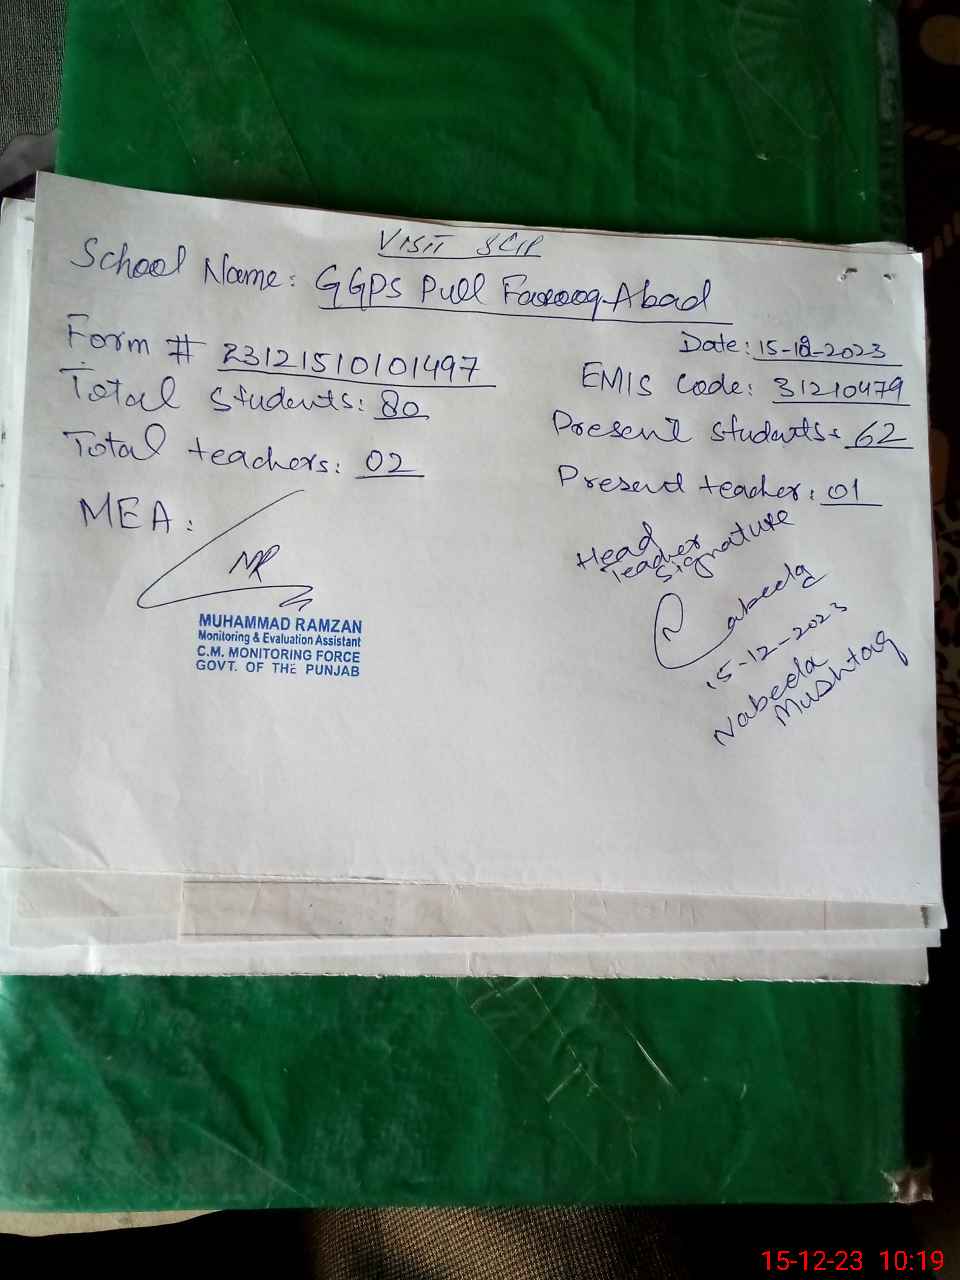 VISIT SLIP
School Name: GGPS Pull Farooq Abad
Date: 15-12-2023
Form # 23121510101497
EMIS Code: 31210479
Total Students: 80
Present students: 62
Total teachers: 02
Present teacher: 01
MEA:
MR
MUHAMMAD RAMZAN
Monitoring & Evaluation Assistant
C.M. MONITORING FORCE
GOVT. OF THE PUNJAB
Head
Teacher
Signature
Nabeela
15-12-2023
Nabeela
Mushtaq
15-12-23 10:19